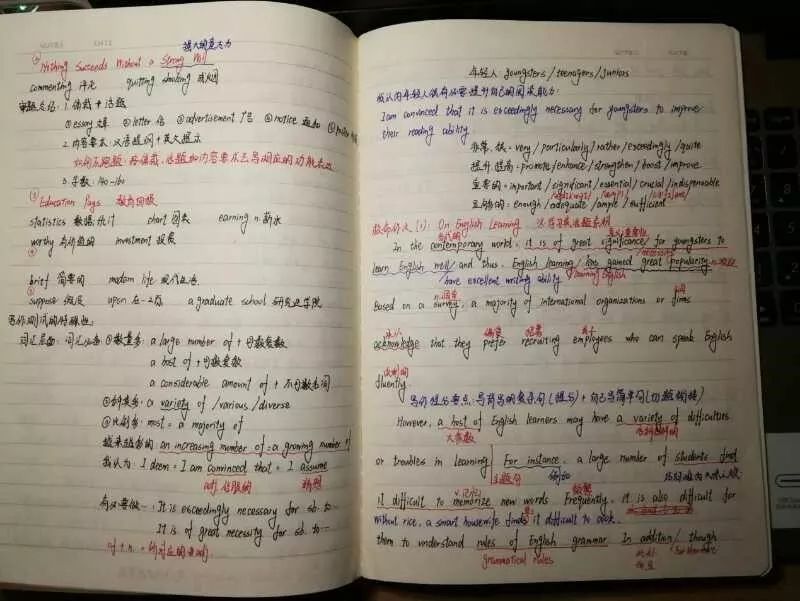 强大的意志力
Nothing Succeeds Without a Strong Will
commenting 评论 quitting smoking 戒烟
审题总结: 1. 体裁 + 话题
①essay 文章 ②letter 信 ③advertisement 广告 ④notice 通知 ⑤
2. 内容要求: 汉语提问 + 英文提示
3. 字数: 140-160
Education Pays 教育回报
statistics 数据,统计 chart 图表 earning n. 薪水
worthy 有价值的 investment 投资
brief 简要的 modern life 现代生活
suppose 假设 upon 在…之后 a graduate school 研究生学院
写作测试的特殊性:
词汇层面: 词汇必备: ①数量多: a large number of + 可数复数
a host of + 可数复数
a considerable amount of + 不可数名词
②种类多: a variety of / various / diverse
③比例多: most = a majority of
越来越多的: an increasing number of = a growing number of
我认为: I deem = I am convinced that = I assume
adj. 信服的 猜想
有必要做…: It is exceedingly necessary for sb. to…
It is of great necessity for sb. to…
of + n. = 所对应的
年轻人: youngsters / teenagers / juniors
我认为年轻人很有必要提升自己的阅读能力:
I am convinced that it is exceedingly necessary for youngsters to improve
their reading ability.
非常,很: very / particularly / rather / exceedingly / quite
提升提高: promote / enhance / strengthen / boost / improve
重要的: important / significant / essential / crucial / indispensable
足够的: enough / adequate / ample / sufficient
救命作文 (1): On English Learning
当代的
In the contemporary world, it is of great significance / for youngsters to
learn English well / and thus, English learning / has gained great popularity.
have excellent writing ability
Based on a survey, a majority of international organizations or firms
承认 偏爱 招聘 员工
acknowledge that they prefer recruiting employees who can speak English
流利的
fluently.
However, a host of English learners may have a variety of difficulties
大多数
or troubles in learning. For instance, a large number of students find
it difficult to memorize new words. Frequently, it is also difficult for
without rice, a smart housewife finds it difficult to cook.
them to understand rules of English grammar. In addition / though
grammatical rules